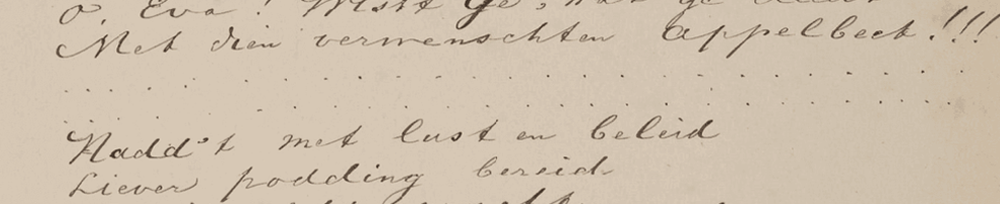 o, Eva! Wist ge, wat ge deedt
Met dien vermenschten Appelbeet!!!
. . . . . . . . . . . . . . . . . . . .
. . . . . . . . . . . . . . . . . . . .
Hadd't met lust en beleid
Liever podding bereid